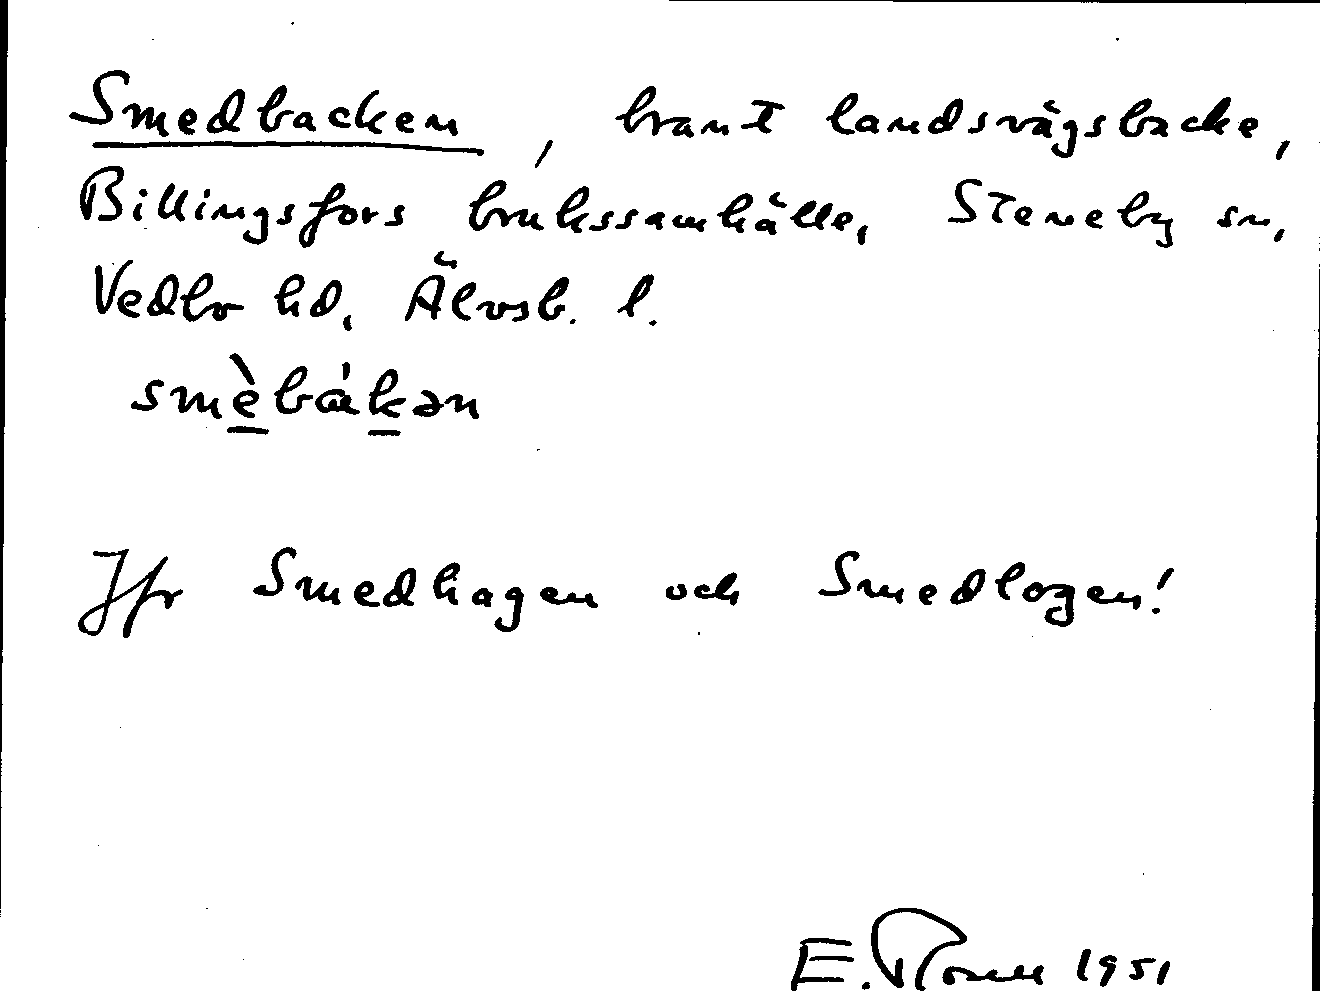 Smedbacken, brant landsvägsbacke,
Billingsfors brukssamhälle, Steneby sn,
Vedbo hd, Älvsb. l.
smèbákən
Jfr Smedhagen och Smedlogen!
E. 1951